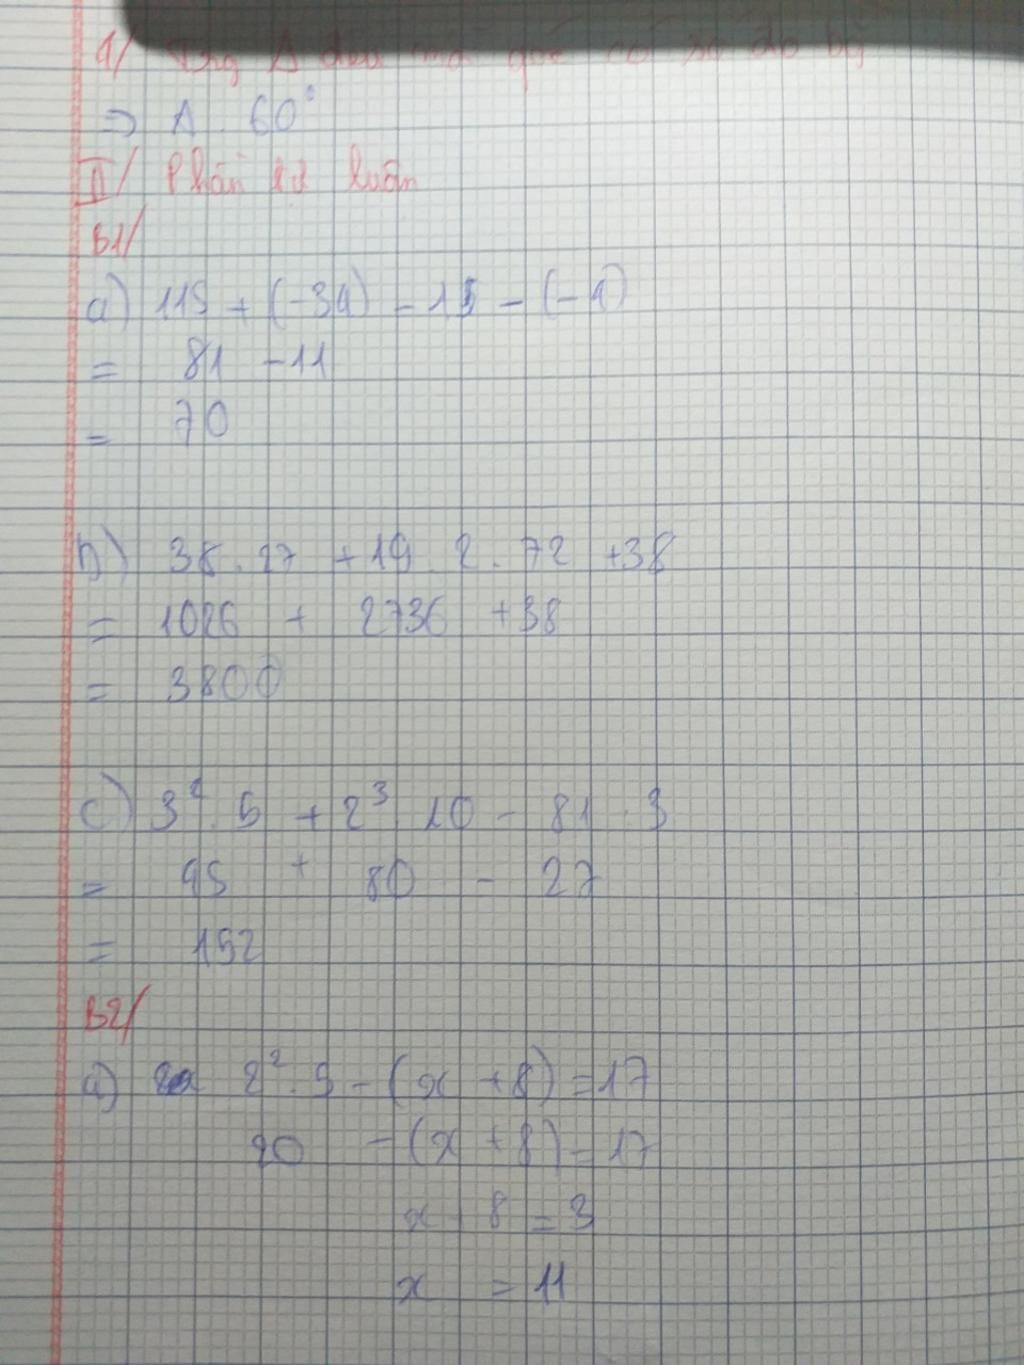 1/ Trg Δ đều mỗi góc có số đo bg
⇒ A. 60°
II/ Phần tự luận
B1/
a) 115 + (-34) - 15 - (-4)
= 81 - 11
= 70
b) 38 . 27 + 19 . 2 . 72 + 38
= 1026 + 2736 + 38
= 3800
c) 3² . 5 + 2³ . 10 - 81 : 3
= 45 + 80 - 27
= 152
B2/
a) 2² . 5 - (x + 8) = 17
20 - (x + 8) = 17
x + 8 = 3
x = 11